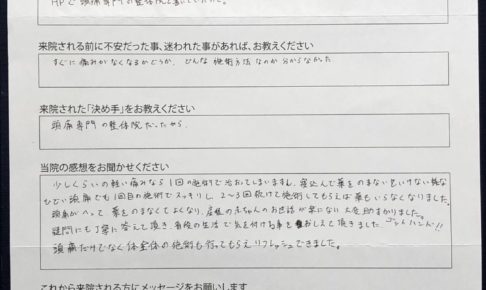 HPで頭痛専門の整体院と書いていたから。
来院される前に不安だった事、迷われた事があれば、お教えください
すぐに痛みがなくなるかどうか、どんな施術方法なのか分からなかった
来院された「決め手」をお教えください
頭痛専門の整体院だったから。
当院の感想をお聞かせください
少しくらいの軽い痛みなら1回の施術で治おてしまいますし、寝込んで薬をのまないといけない様な
ひどい頭痛でも1回目の施術でスッキリし、2〜3回続けて施術してもらえば薬もいらなくなりました。
頭痛がへって、薬をのまなくてよくなり、産後の赤ちゃんのお世話が楽になり大変助かりました。
疑問にも丁寧に答えて頂き、普段の生活で気を付ける事をおしえて頂きました
頭痛だけでなく体全体の施術も行ってもらえリフレッシュできました。
これから来院される方にメッセージをお願いします